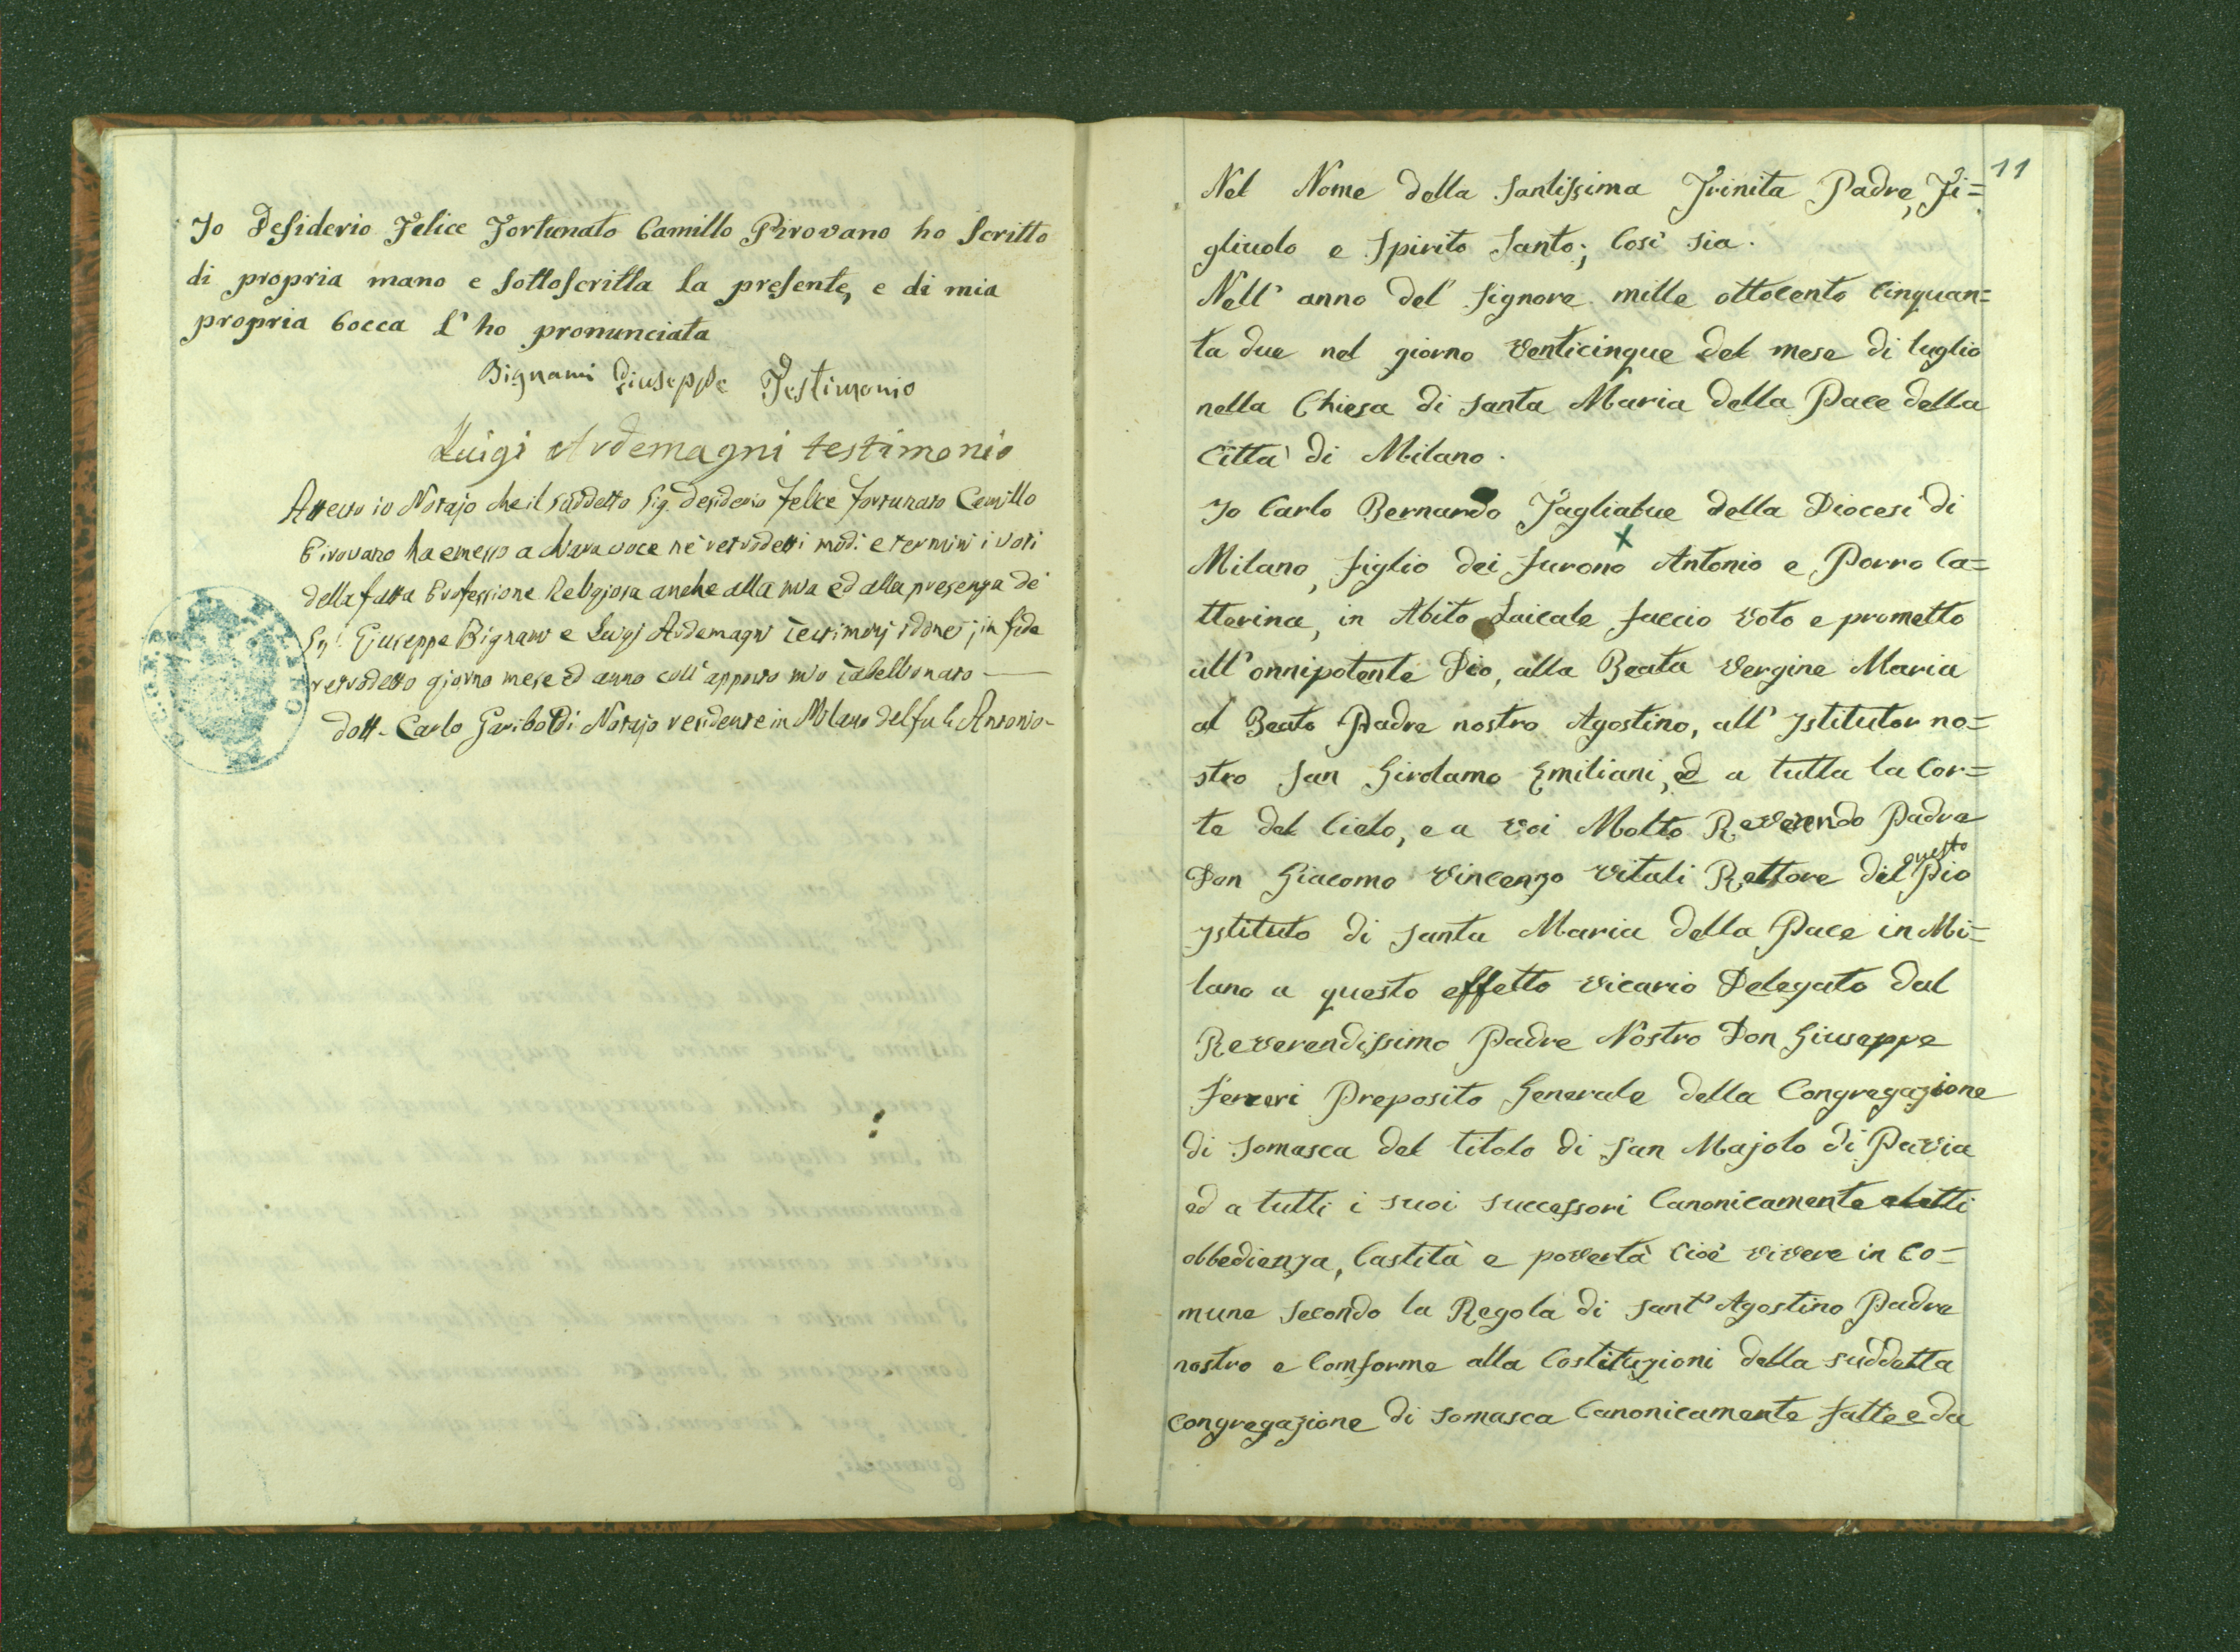 Io Desiderio Felice Fortunato Camillo Pirovano ho scritto
di propria mano e sottoscritta la presente, e di mia
propria bocca l'ho pronunciata
Bignami Giuseppe Testimonio
Luigi Ardemagni testimonio
Attesto io Notajo che il suddetto Sig. desiderio felice fortunato Camillo
Pirovano ha emesso a chiara voce ne' retrodetti modi e termini i voti
della fatta Professione Religiosa anche alla mia ed alla presenza de'
Sig.i Giuseppe Bignami e Luigi Ardemagni Testimonj idonei; in fede
retrodetto giorno mese ed anno coll'apposto mio Tabellionato
dott. Carlo Gariboldi Notajo residente in Milano del fu Antonio
11
Nel Nome della Santissima Trinita Padre, Fi=
gliuolo e Spirito Santo; Così sia.
Nell' anno del' Signore mille ottocento Cinquan=
ta due nel giorno Venticinque del mese di luglio
nella Chiesa di Santa Maria della Pace della
Città di Milano.
Io Carlo Bernardo Tagliabue della Diocesi di
x
Milano, figlio dei furono Antonio e Porro Ca=
tterina, in Abito Laicale faccio Voto e prometto
all'onnipotente Dio, alla Beata Vergine Maria
al Beato Padre nostro Agostino, all' Istitutor no=
stro San Girolamo Emiliani, ed a tutta la Cor=
te del Cielo, e a Voi Molto Reverendo Padre
questo
Don Giacomo Vincenzo Vitali Rettore del Pio
Istituto di Santa Maria della Pace in Mi=
lano a questo effetto Vicario Delegato dal
Reverendissimo Padre Nostro Don Giuseppe
Ferreri Preposito Generale della Congregazione
di Somasca del titolo di San Majolo di Pavia
ed a tutti i suoi successori Canonicamente eletti
obbedienza, Castità e povertà Cioè Vivere in Co=
mune Secondo la Regola di Sant' Agostino Padre
nostro e Comforme alla Costituzioni della suddetta
Congregazione di Somasca Canonicamente fatte e da